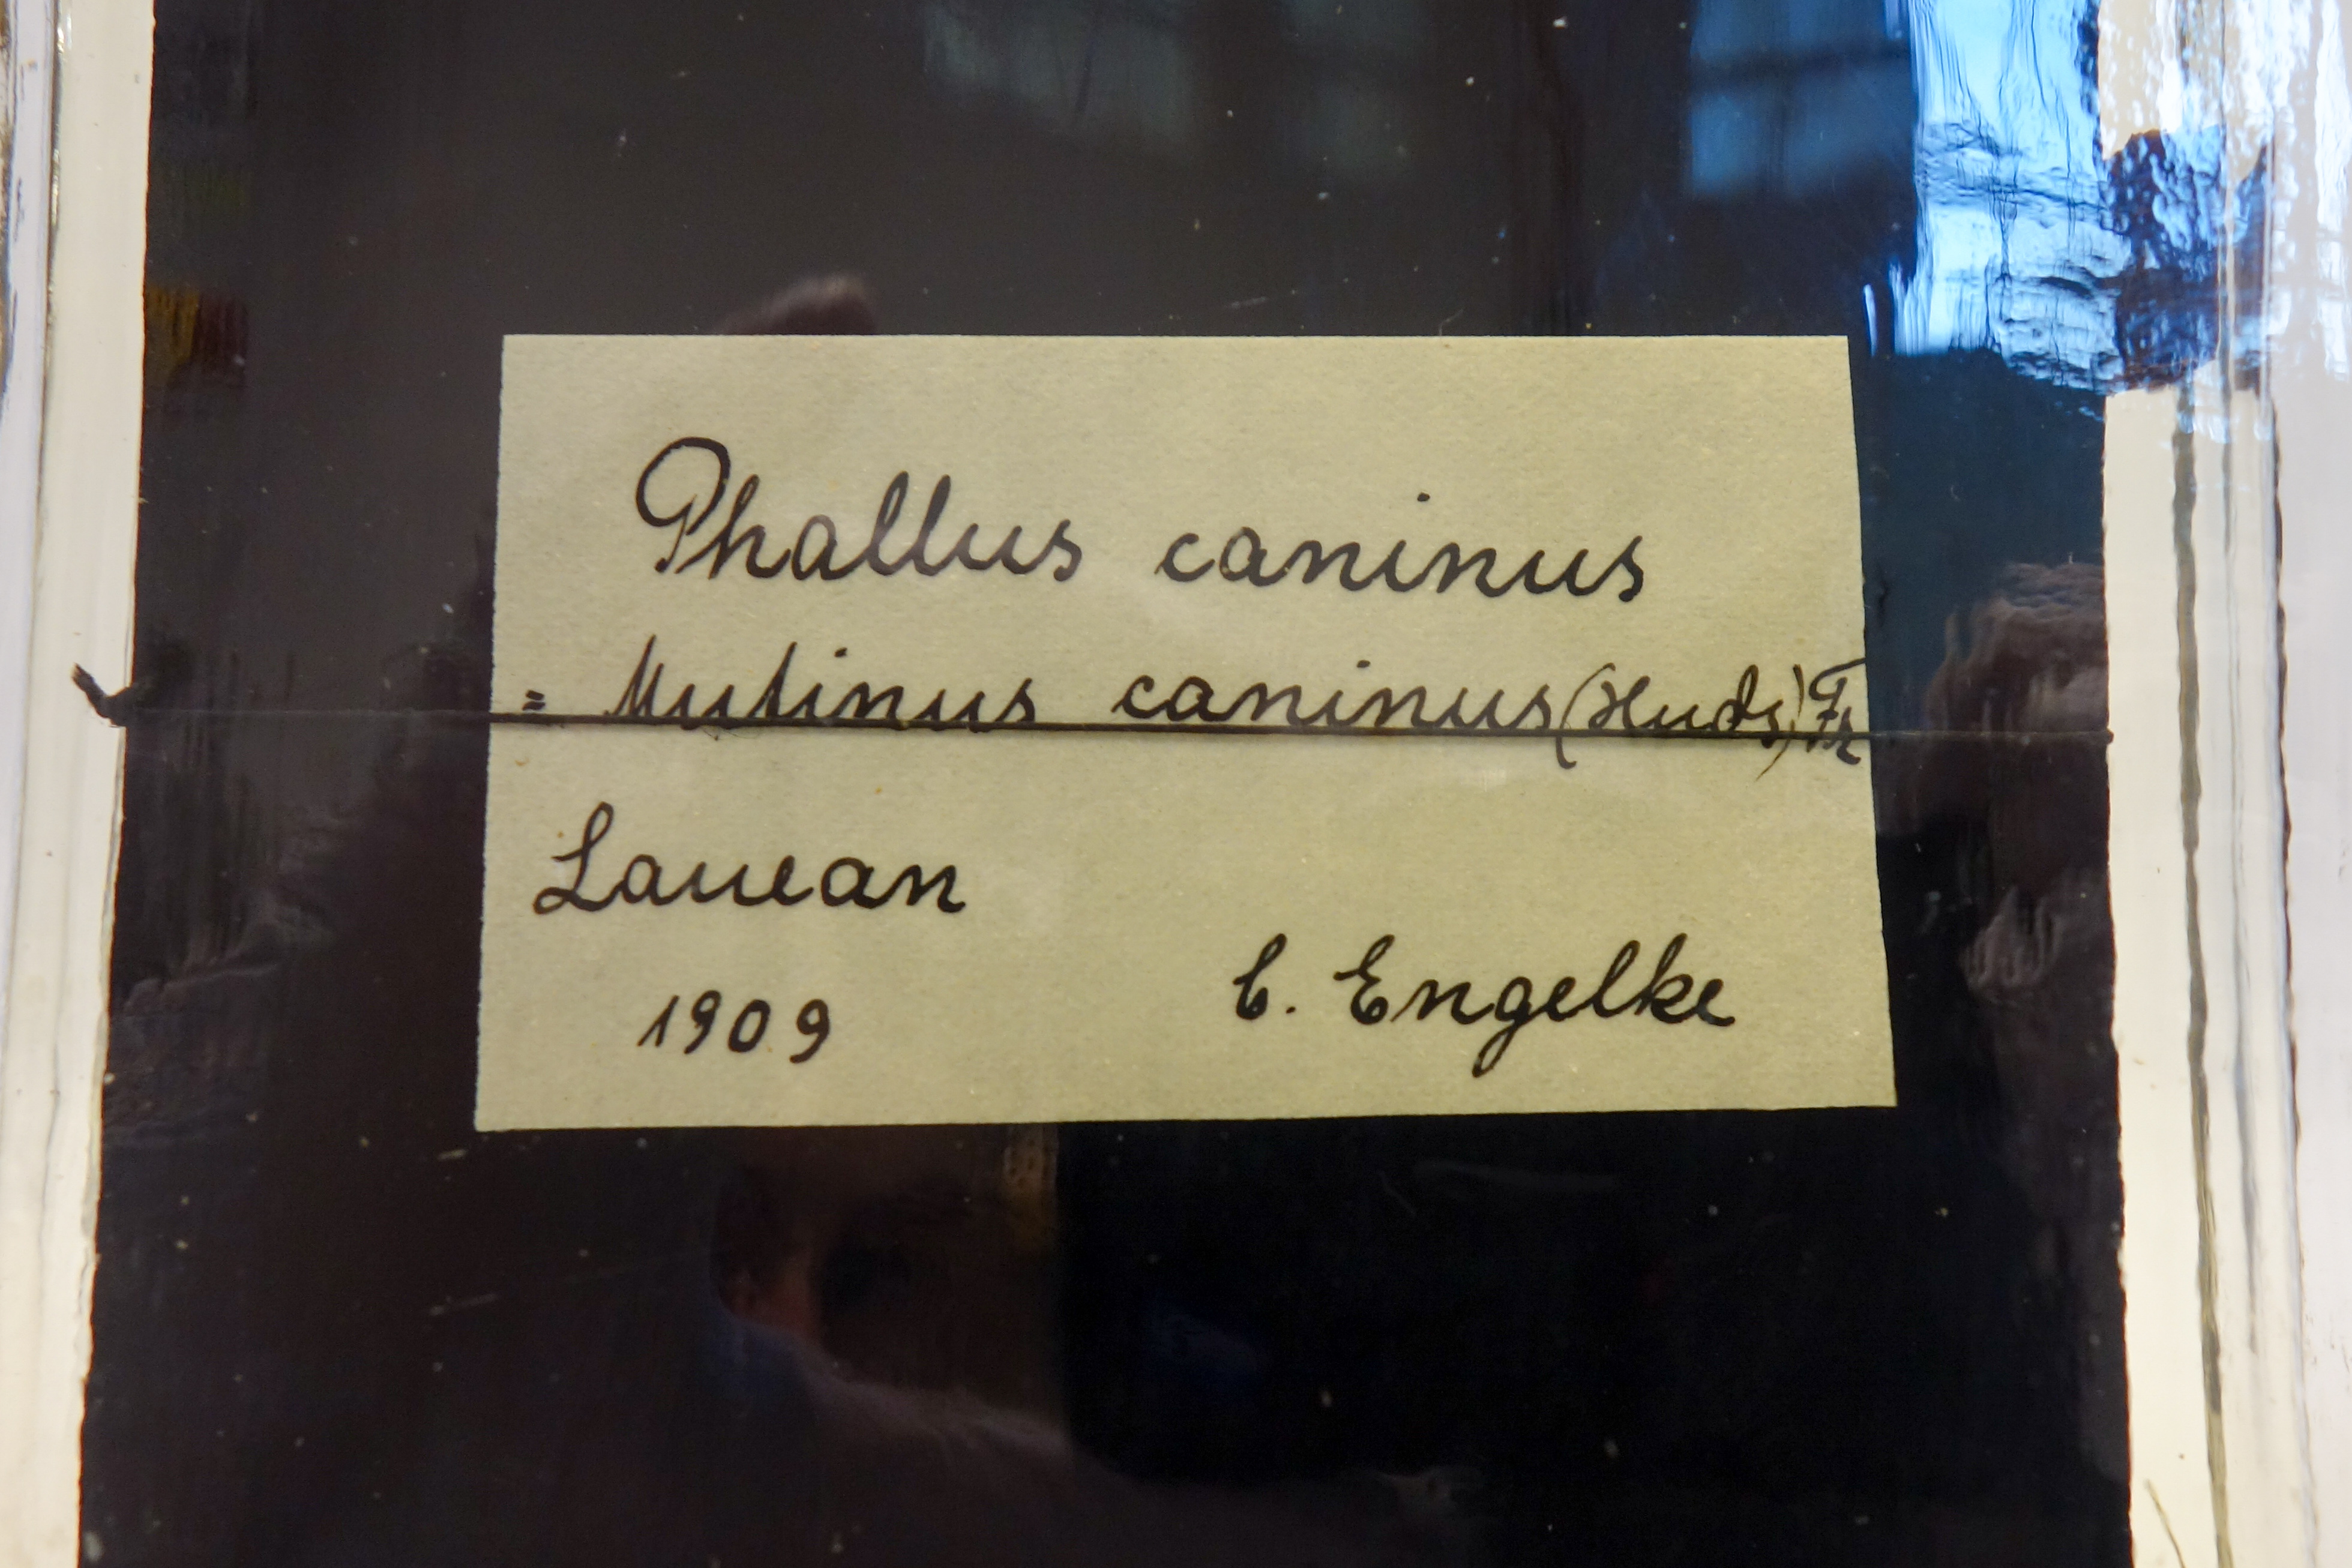 Phallus caninus
= Mutinus caninus (Huds) Fr
Lauean
1909
C. Engelke